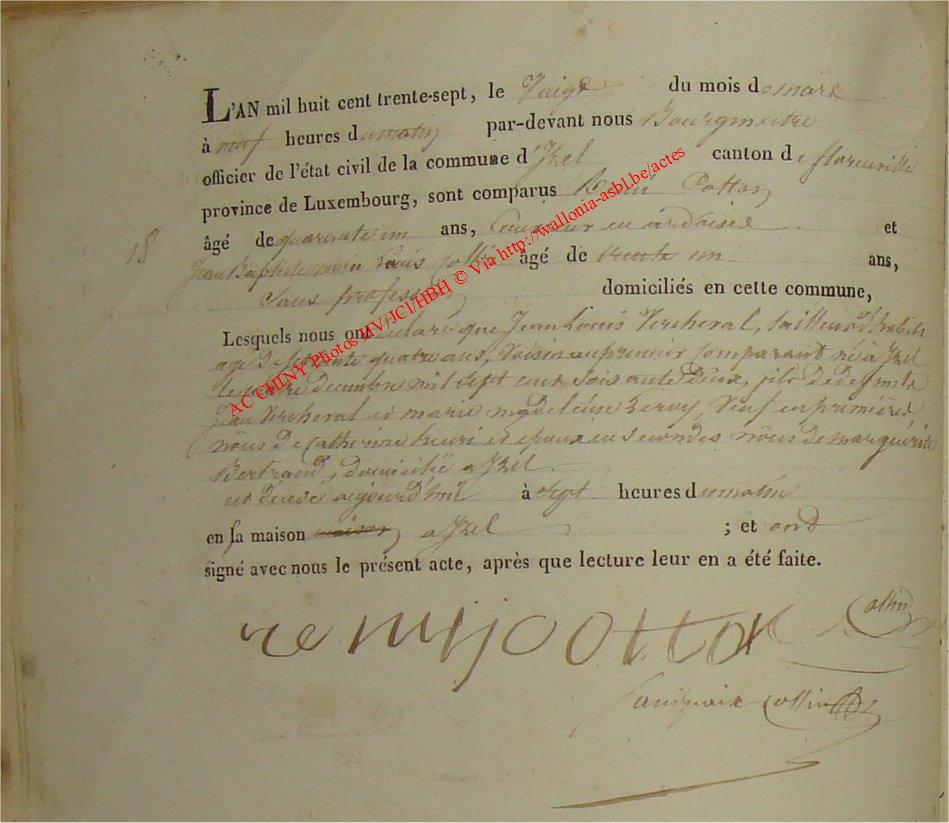 L'AN mil huit cent trente-sept, le Vingt du mois de mars
à neuf heures du matin par-devant nous Bourgmestre
officier de l'état civil de la commune d'Izel canton de florenville
province de Luxembourg, sont comparus Remi Cottay
18
âgé de quarante un ans, Couvreur en ardoises et
Jean Baptiste marie Louis Collin âgé de trente un ans,
Sans profession domiciliés en cette commune,
Lesquels nous ont déclaré que Jean Louis Vercheval, tailleur d'habits
agé de septante quatre ans, Voisin au premier Comparant né à Izel
le quatre decembre mil sept cent soixante Deux, fils de defunts
Jean Vercheval et marie magdeleine, Veuf en premières
nôces de Catherine henri et epoux en secondes nôces de marguerite
Bertrand, domicilié a Izel
est décédé aujourd'hui à Sept heures du matin
en sa maison a Izel ; et ont
signé avec nous le présent acte, après que lecture leur en a été faite.
remij Cottay Collin
Collin
AC CHINY Photos HV/JCl/HBH © Via http://wallonia-asbl.be/actes